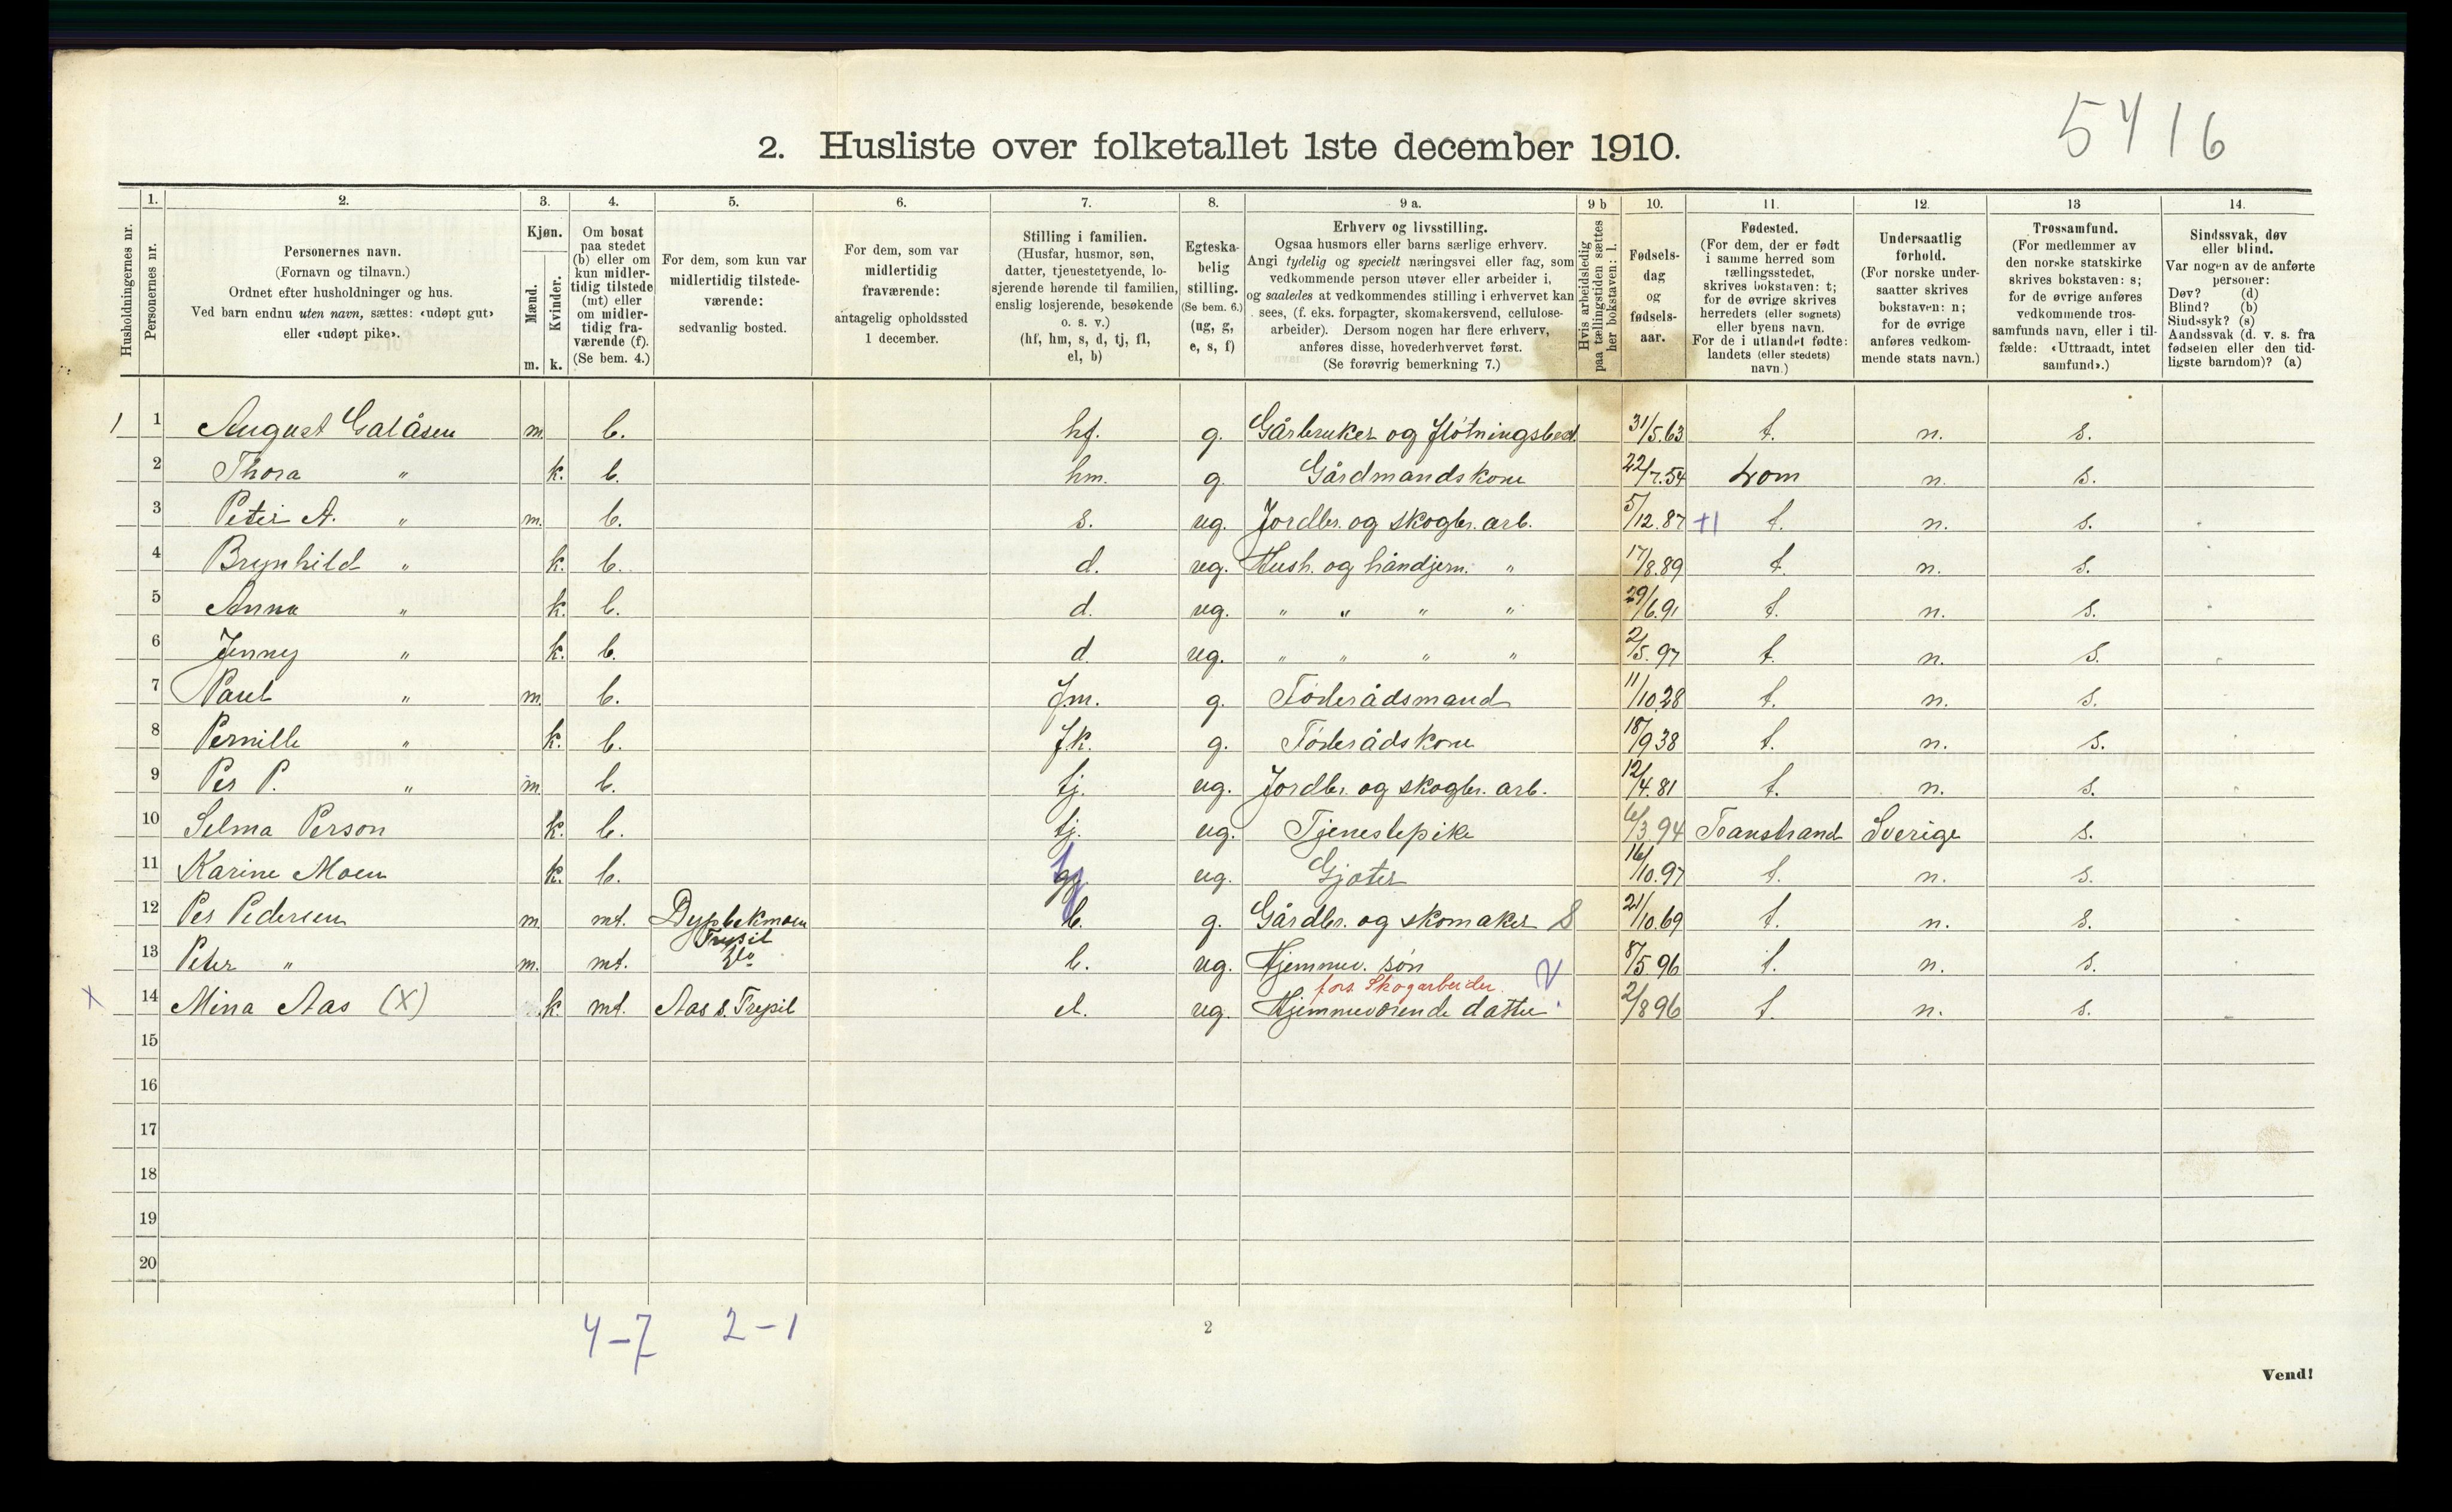 5416
2. Husliste over folketallet 1ste december 1910.
Husholdningernes nr.
1. Personernes nr.
2. Personernes navn.
(Fornavn og tilnavn.)
Ordnet efter husholdninger og hus.
Ved barn endnu uten navn, sættes: «udøpt gut»
eller «udøpt pike».
3. Kjøn.
Mænd. m.
Kvinder. k.
4. Om bosat
paa stedet
(b) eller om
kun midler-
tidig tilstede
(mt) eller
om midler-
tidig fra-
værende (f).
(Se bem. 4.)
5. For dem, som kun var
midlertidig tilstede-
værende:
sedvanlig bosted.
6. For dem, som var
midlertidig
fraværende:
antagelig opholdssted
1 december.
7. Stilling i familien.
(Husfar, husmor, søn,
datter, tjenestetyende, lo-
sjerende hørende til familien,
enslig losjerende, besøkende
o. s. v.)
(hf, hm, s, d, tj, fl,
el, b)
8. Egteska-
belig
stilling.
(Se bem. 6.)
(ug, g,
e, s, f)
9 a. Erhverv og livsstilling.
Ogsaa husmors eller barns særlige erhverv.
Angi tydelig og specielt næringsvei eller fag, som
vedkommende person utøver eller arbeider i,
og saaledes at vedkommendes stilling i erhvervet kan
sees, (f. eks. forpagter, skomakersvend, cellulose-
arbeider). Dersom nogen har flere erhverv,
anføres disse, hovederhvervet først.
(Se forøvrig bemerkning 7.)
9 b Hvis arbeidsledig
paa tællingstiden sættes
her bokstaven: l.
10. Fødsels-
dag
og
fødsels-
aar.
11. Fødested.
(For dem, der er født
i samme herred som
tællingsstedet,
skrives bokstaven: t;
for de øvrige skrives
herredets (eller sognets)
eller byens navn.
For de i utlandet fødte:
landets (eller stedets)
navn.)
12. Undersaatlig
forhold.
(For norske under-
saatter skrives
bokstaven: n;
for de øvrige
anføres vedkom-
mende stats navn.)
13 Trossamfund.
(For medlemmer av
den norske statskirke
skrives bokstaven: s;
for de øvrige anføres
vedkommende tros-
samfunds navn, eller i til-
fælde: «Uttraadt, intet
samfund».)
14. Sindssvak, døv
eller blind.
Var nogen av de anførte
personer:
Døv? (d)
Blind? (b)
Sindssyk? (s)
Aandssvak (d. v. s. fra
fødselen eller den tid-
ligste barndom)? (a)
1 1 August Galåsen m. b. hf. g. Gårbruker og fløtningsbest. 31/5.63 t. n. s.
2 Thora " k. b. hm. g. Gårdmandskone 22/7.54 Lom n. s.
3 Peter A. " m. b. s. ug. Jordbr. og skogbr. arb. 5/12.87 +1 t. n. s.
4 Brynhild " k. b. d. ug. Hush. og håndjern. " 17/8.89 t. n. s.
5 Anna " k. b. d. ug. " " " " 29/6.91 t. n. s.
6 Jenny " k. b. d. ug. " " " " 2/5.97 t. n. s.
7 Paul " m. b. fm. g. Föderådsmand 11/10.28 t. n. s.
8 Pernille " k. b. fk. g. Föderådskone 18/9 38 t. n. s.
9 Per P. " m. b. tj. ug. Jordbr. og skogbr. arb. 12/4.81 t. n. s.
10 Selma Person k. b. tj. ug. Tjenestepike 6/3 94 Transtrand Sverige s.
11 Karine Moen k. b. tj ug. Gjæter 16/10.97 t. n. s.
12 Per Pedersen m. mt. Dypbekmoen Trysil b. g. Gårdbr. og skomaker S 21/10.69 t. n. s.
13 Peter " m. mt. do b. ug. Hjemmev. søn 8/5 96 t. n. s.
fors. Skogarbeider.
x 14 Mina Aas (X) k. mt. Aas s. Trysil el. ug. Hjemmeværende datter 2/8 96 t. n. s.
15
16
17
18
19
20
4-7 2-1
2
Vend!